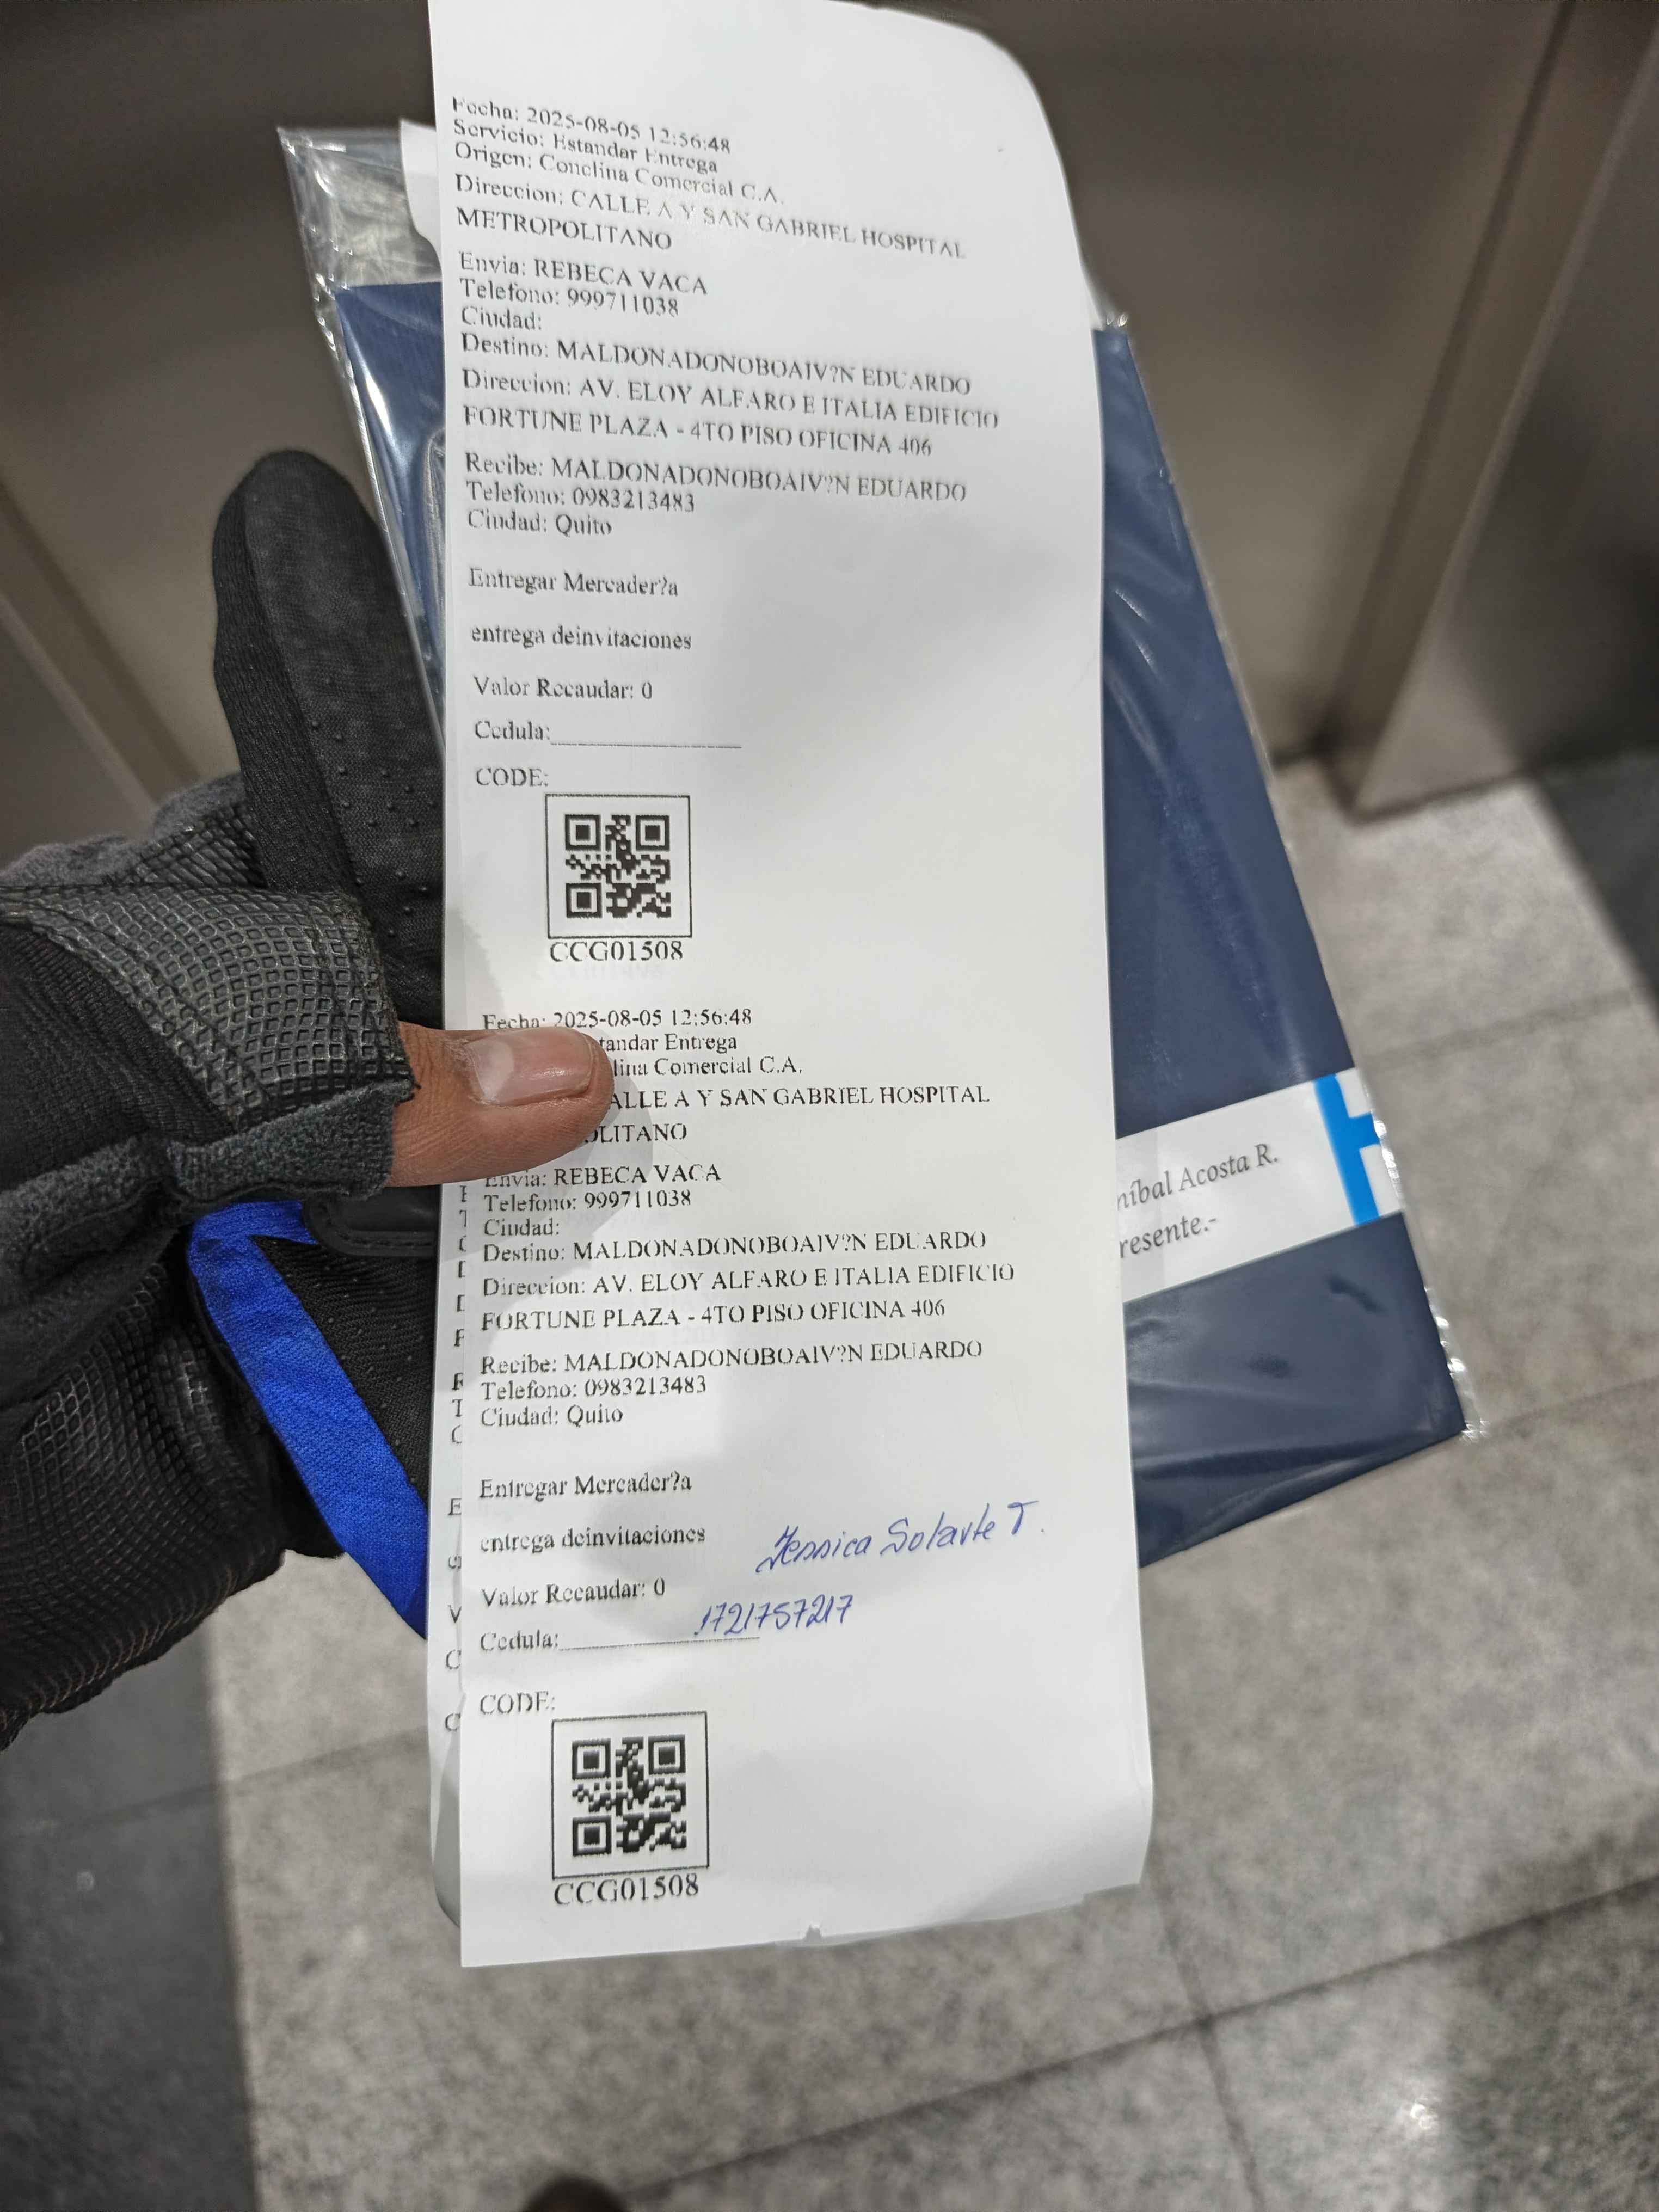 Fecha: 2025-08-05 12:56:48
Servicio: Estandar Entrega
Origen: Conclina Comercial C.A.
Direccion: CALLE A Y SAN GABRIEL HOSPITAL
METROPOLITANO
Envia: REBECA VACA
Telefono: 999711038
Ciudad:
Destino: MALDONADONOBOAIV?N EDUARDO
Direccion: AV. ELOY ALFARO E ITALIA EDIFICIO
FORTUNE PLAZA - 4TO PISO OFICINA 406
Recibe: MALDONADONOBOAIV?N EDUARDO
Telefono: 0983213483
Ciudad: Quito
Entregar Mercader?a
entrega deinvitaciones
Valor Recaudar: 0
Cedula:
CODE:
CCG01508
Fecha: 2025-08-05 12:56:48
tandar Entrega
lina Comercial C.A.
ALLE A Y SAN GABRIEL HOSPITAL
OLITANO
Envia: REBECA VACA
Telefono: 999711038
Ciudad:
Destino: MALDONADONOBOAIV?N EDUARDO
Direccion: AV. ELOY ALFARO E ITALIA EDIFICIO
FORTUNE PLAZA - 4TO PISO OFICINA 406
Recibe: MALDONADONOBOAIV?N EDUARDO
Telefono: 0983213483
Ciudad: Quito
Entregar Mercader?a
entrega deinvitaciones
Jessica Solarte T.
Valor Recaudar: 0
Cedula: 1721757217
CODE:
CCG01508
níbal Acosta R.
resente.-